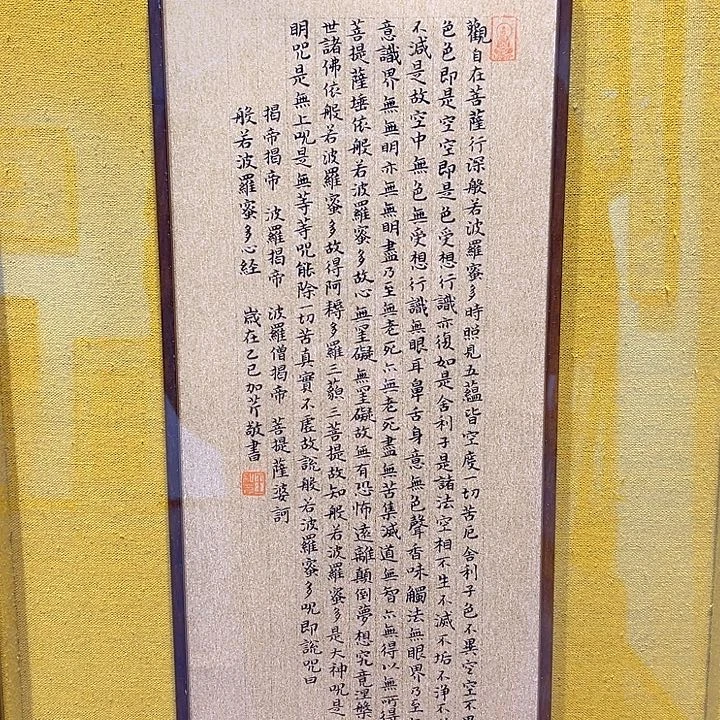 觀自在菩薩行深般若波羅蜜多時照見五蘊皆空度一切苦厄舍利子色不異空空不異
色色即是空空即是色受想行識亦復如是舍利子是諸法空相不生不滅不垢不淨不
不減是故空中無色無受想行識無眼耳鼻舌身意無色聲香味觸法無眼界乃至
意識界無無明亦無無明盡乃至無老死亦無老死盡無苦集滅道無智亦無得以無所得
菩提薩埵依般若波羅蜜多故心無罣礙無罣礙故無有恐怖遠離顛倒夢想究竟涅槃
世諸佛依般若波羅蜜多故得阿耨多羅三藐三菩提故知般若波羅蜜多是大神咒是
明咒是無上咒是無等等咒能除一切苦真實不虛故說般若波羅蜜多咒即說咒曰
揭帝揭帝 波羅揭帝 波羅僧揭帝 菩提薩婆訶
般若波羅蜜多心経 歲在乙巳加芹敬書